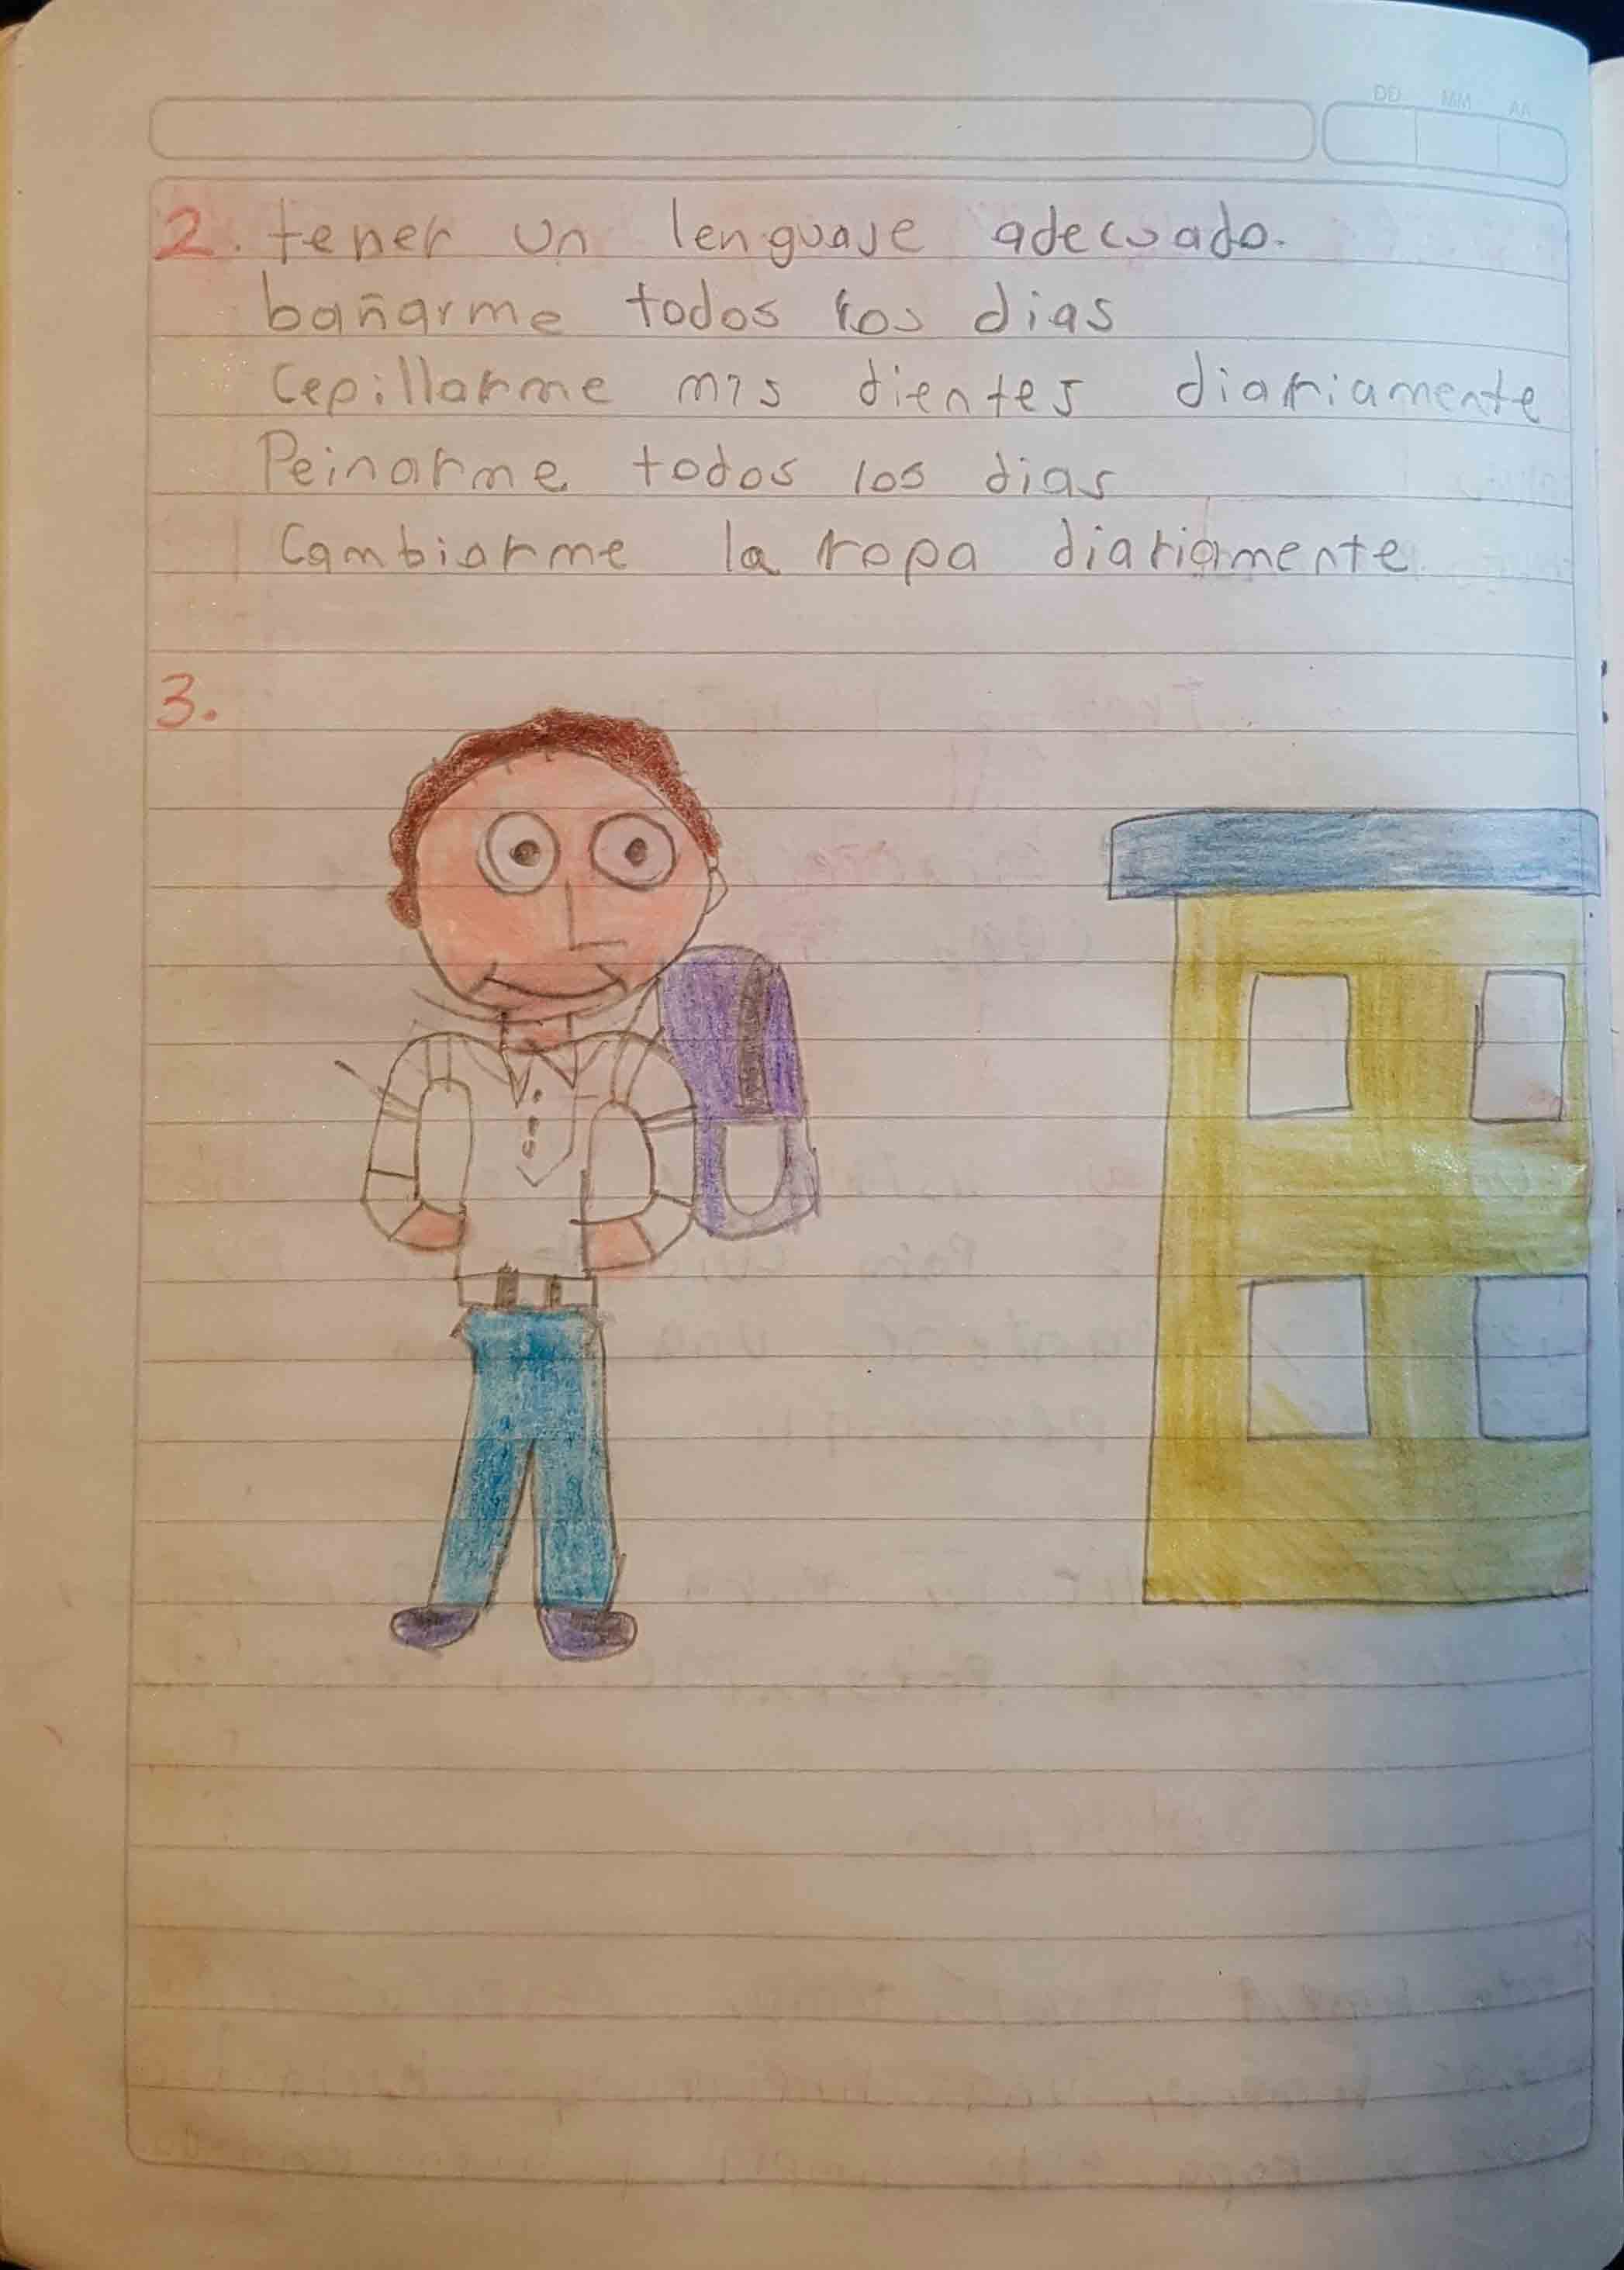 DD MM AA
2. tener un lenguaje adecuado.
bañarme todos los dias
Cepillarme mis dientes diariamente
Peinarme todos los dias
Cambiarme la ropa diariamente
3.